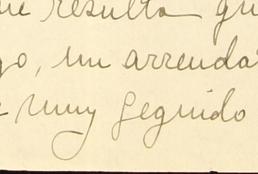 ue resulta qu
go, un arrenda
e muy seguido